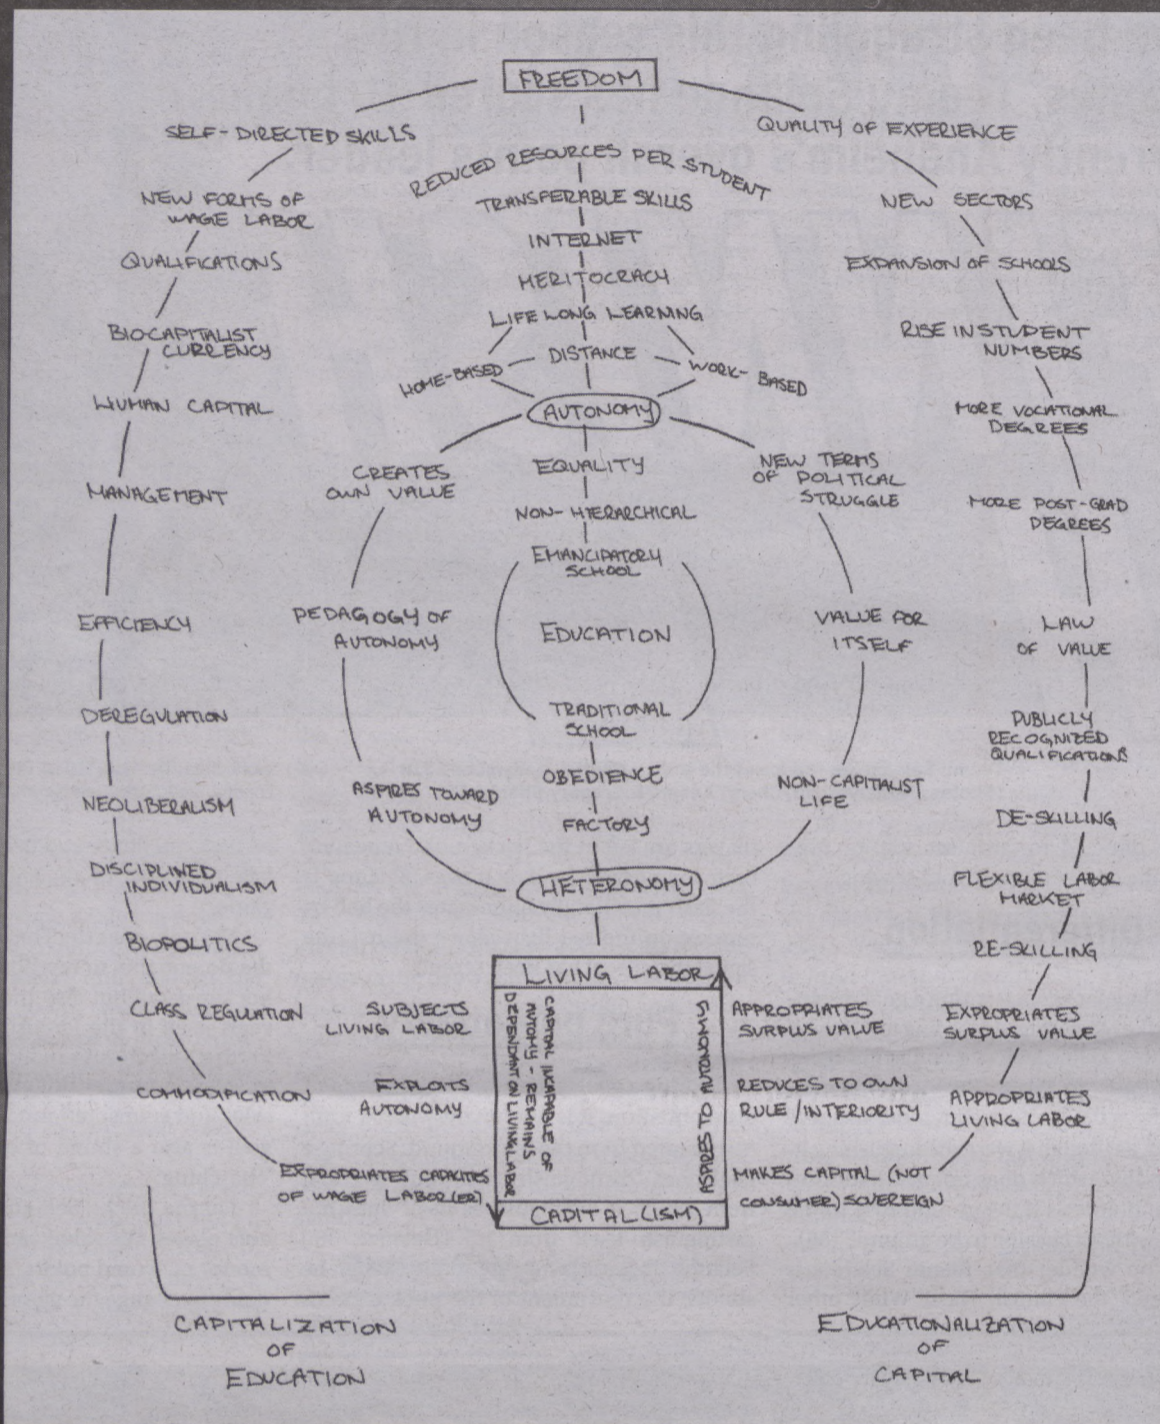 FREEDOM
SELF-DIRECTED SKILLS
NEW FORMS OF
WAGE LABOR
QUALIFICATIONS
BIOCAPITALIST
CURRENCY
HUMAN CAPITAL
MANAGEMENT
EFFICIENCY
DEREGULATION
NEOLIBERALISM
DISCIPLINED
INDIVIDUALISM
BIOPOLITICS
CLASS REGULATION
COMMODIFICATION
EXPROPRIATES CAPACITIES
OF WAGE LABOR(ER)
REDUCED RESOURCES PER STUDENT
TRANSFERABLE SKILLS
INTERNET
MERITOCRACY
LIFE LONG LEARNING
HOME-BASED
DISTANCE
WORK-BASED
AUTONOMY
CREATES
OWN VALUE
PEDAGOGY OF
AUTONOMY
ASPIRES TOWARD
AUTONOMY
EQUALITY
NON-HIERARCHICAL
EMANCIPATORY
SCHOOL
EDUCATION
TRADITIONAL
SCHOOL
OBEDIENCE
FACTORY
HETERONOMY
NEW TERMS
OF POLITICAL
STRUGGLE
VALUE FOR
ITSELF
NON-CAPITALIST
LIFE
QUALITY OF EXPERIENCE
NEW SECTORS
EXPANSION OF SCHOOLS
RISE IN STUDENT
NUMBERS
MORE VOCATIONAL
DEGREES
MORE POST-GRAD
DEGREES
LAW
OF VALUE
PUBLICLY
RECOGNIZED
QUALIFICATIONS
DE-SKILLING
FLEXIBLE LABOR
MARKET
RE-SKILLING
EXPROPRIATES
SURPLUS VALUE
APPROPRIATES
LIVING LABOR
LIVING LABOR
SUBJECTS
LIVING LABOR
EXPLOITS
AUTONOMY
CAPITAL INCAPABLE OF
AUTOMY - REMAINS
DEPENDANT ON LIVING LABOR
ASPIRES TO AUTONOMY
APPROPRIATES
SURPLUS VALUE
REDUCES TO OWN
RULE/INTERIORITY
MAKES CAPITAL (NOT
CONSUMER) SOVEREIGN
CAPITAL(ISM)
CAPITALIZATION
OF
EDUCATION
EDUCATIONALIZATION
OF
CAPITAL